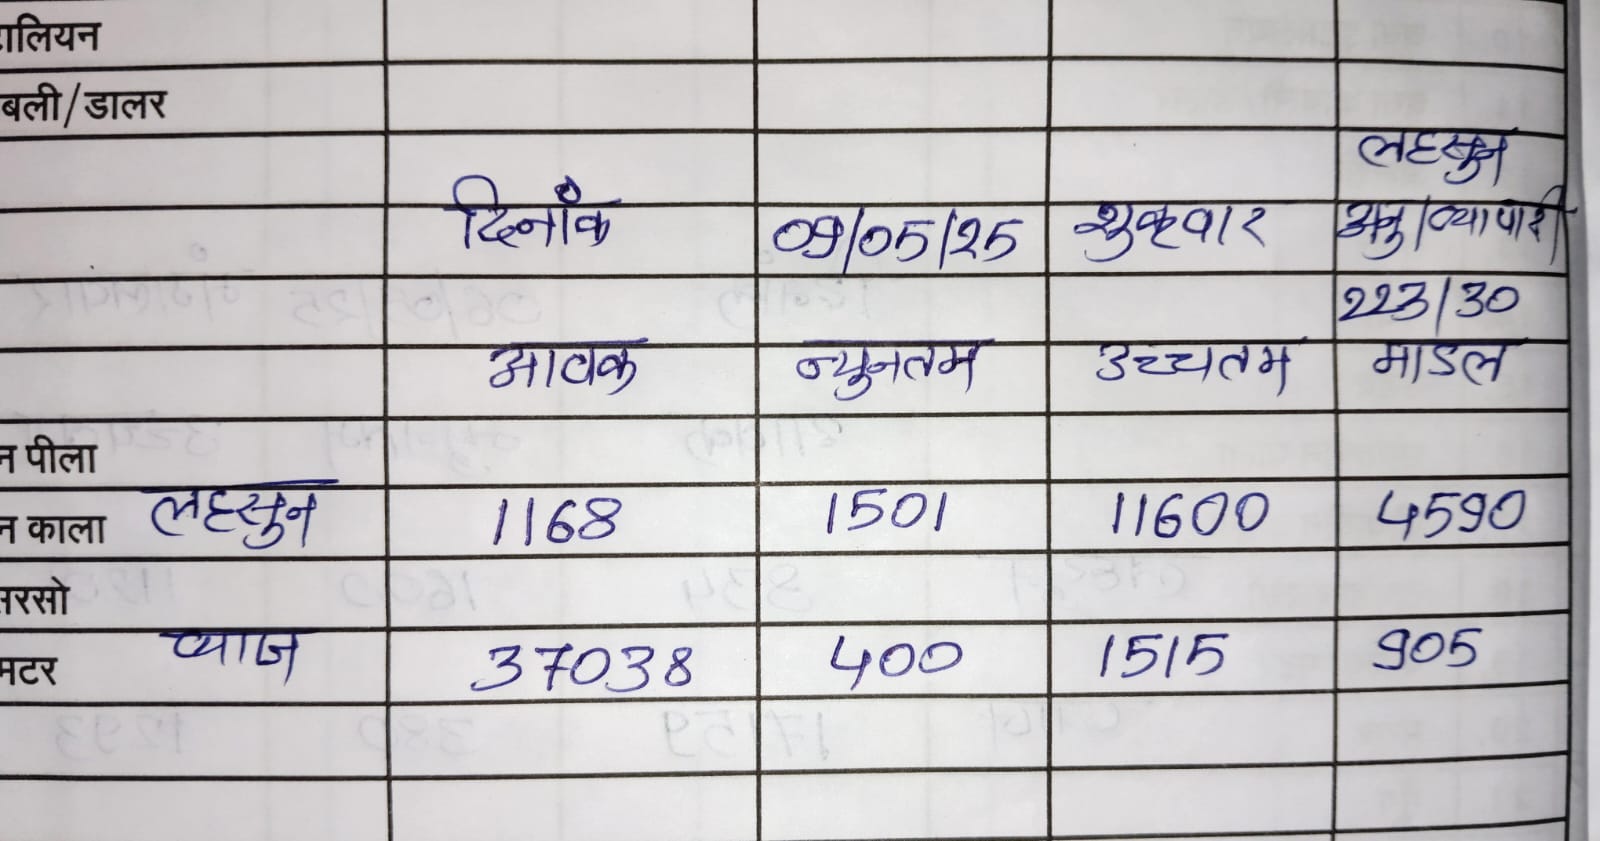 ालियन
बली/डालर
लहसुन
दिनांक 09/05/25 शुक्रवार अनु/व्यापारी
223/30
आवक न्युनतम उच्चतम माडल
न पीला
न काला लहसुन 1168 1501 11600 4590
सरसो
मटर प्याज 37038 400 1515 905